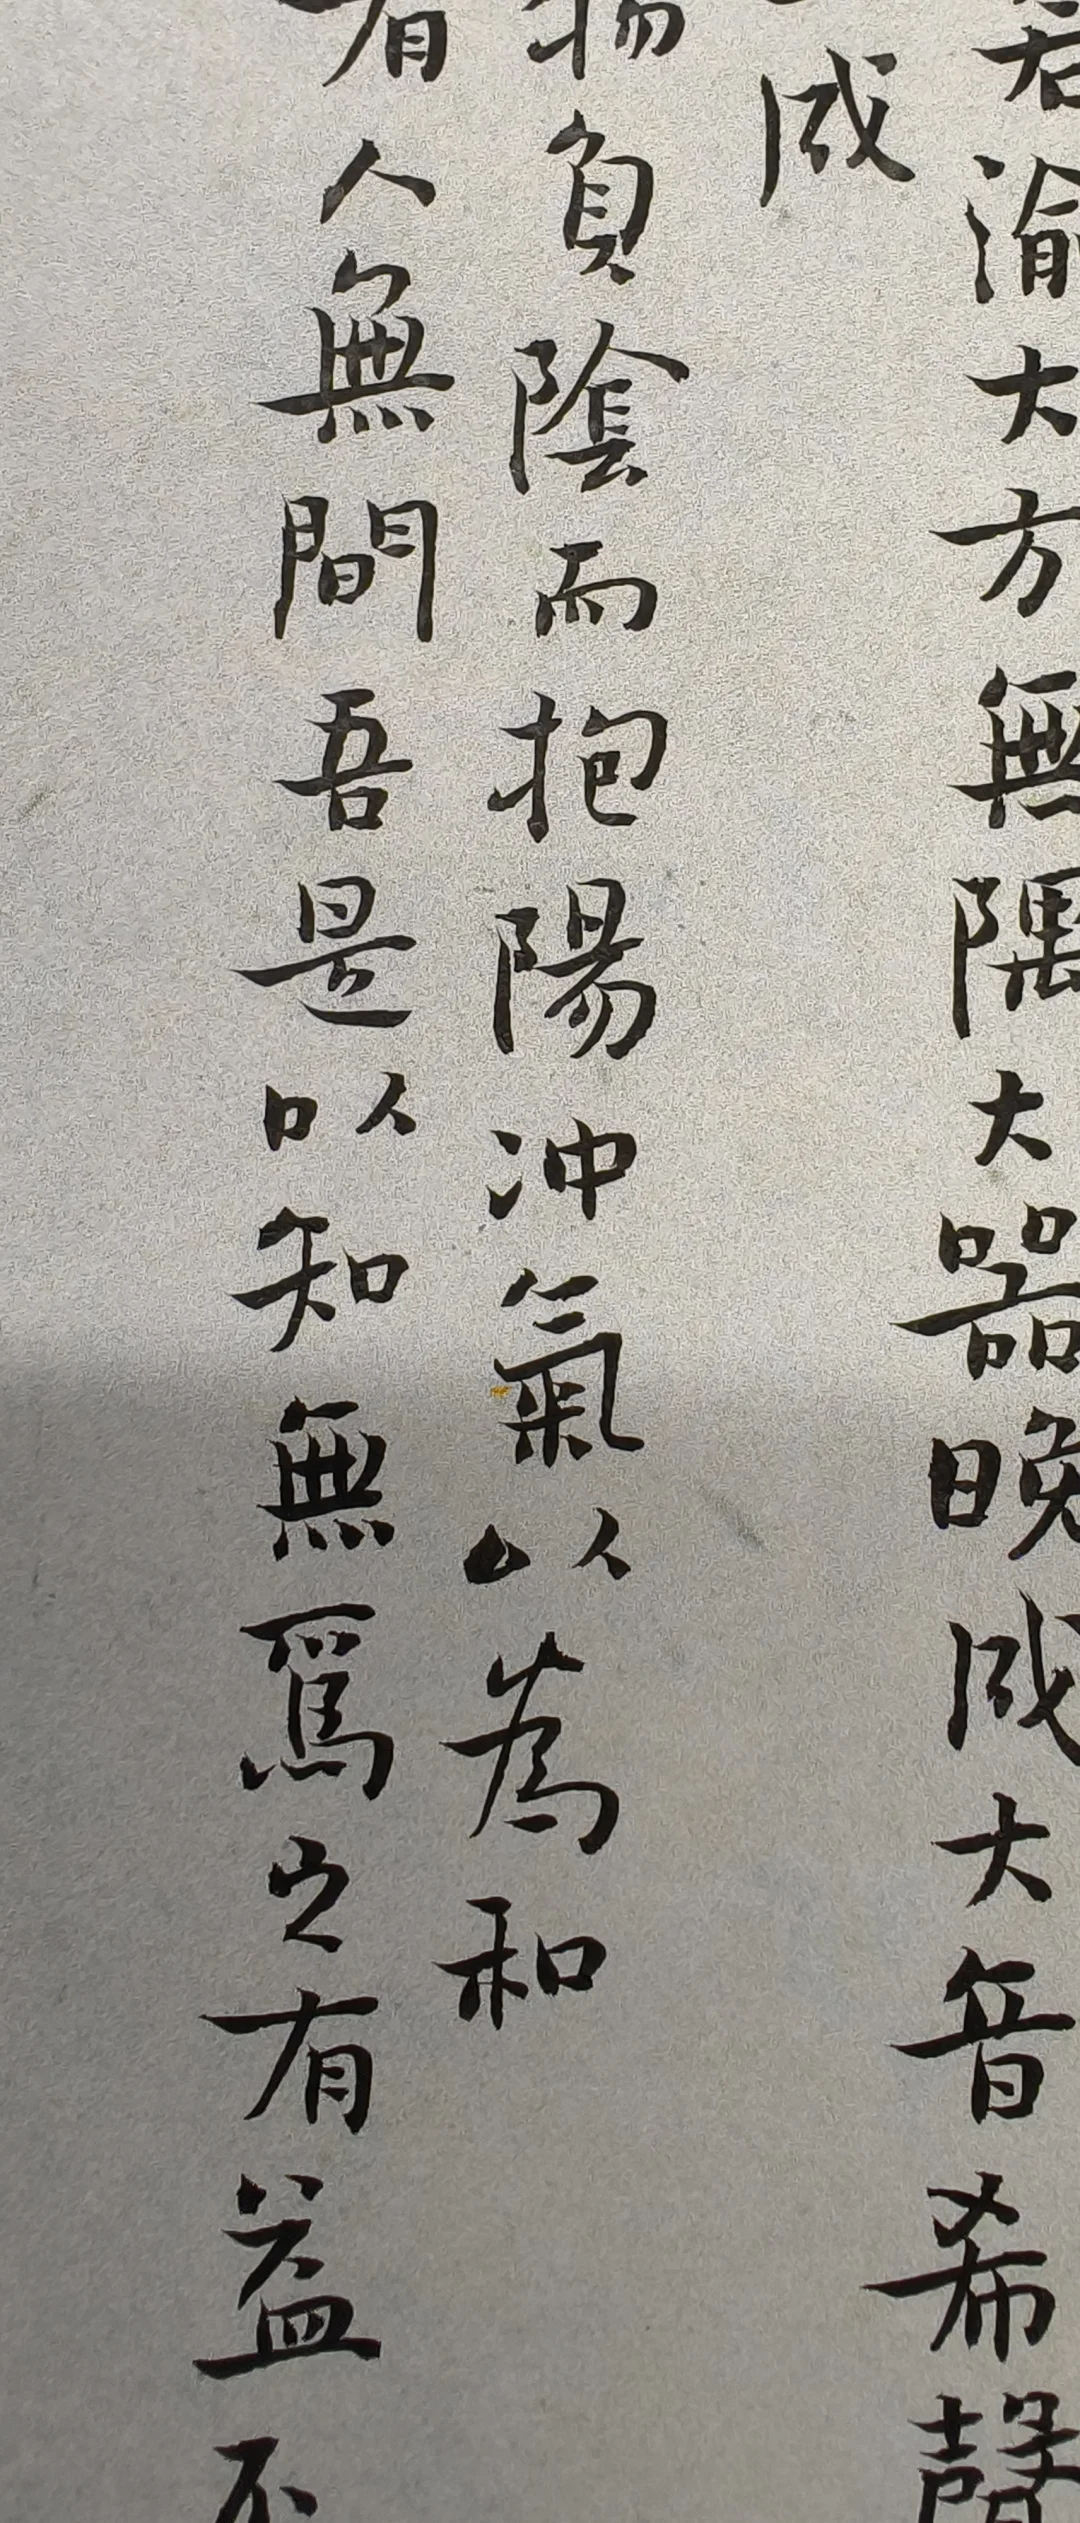 若渝大方無隅大器晚成大音希聲
成
物負陰而抱陽沖氣以為和
有人無間吾是以知無爲之有益不